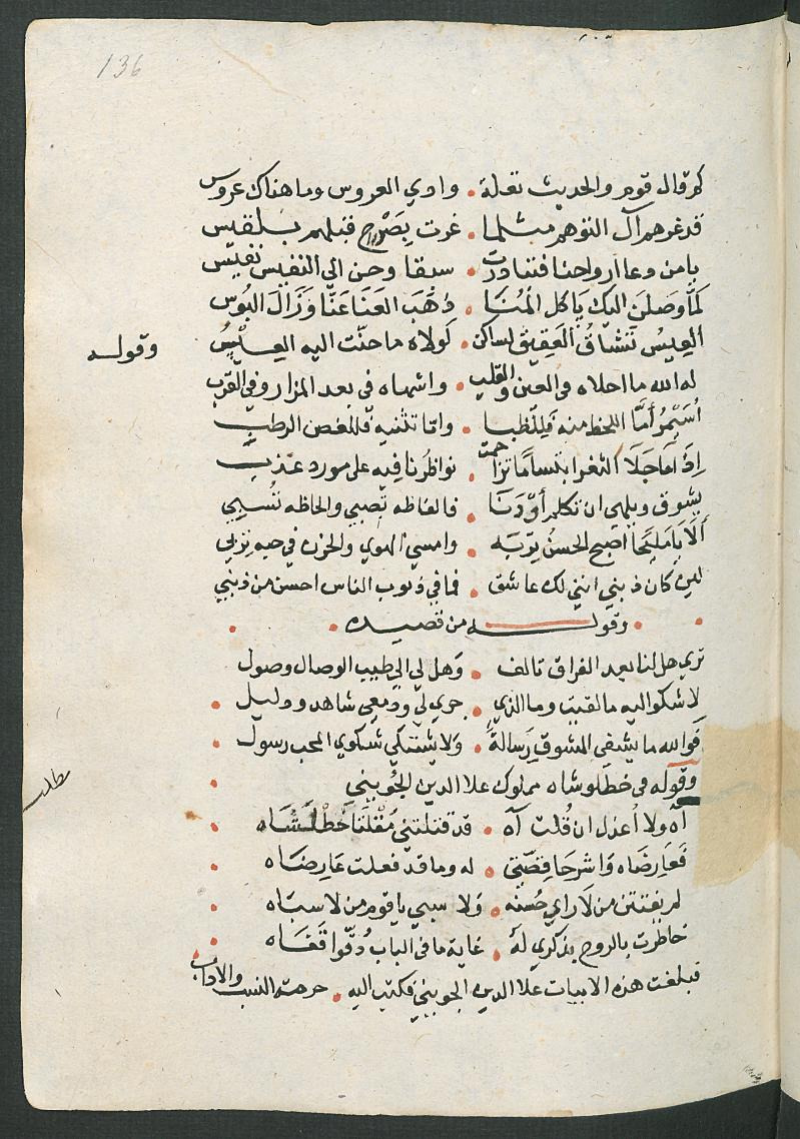 136
كم قال قوم والحديث تعلة . وادي العروس وما هناك عروس
قد غرهم آل التوهم مثلما . غرت بصرح قبلهم بلقيس
يا من دعا ارواحنا فتبادرت . سبقا وحن الى النفيس نفيس
لما وصلن اليك يا كل المنا . ذهب العنا عنا وزال البوس
العيس تشتاق العقيق لساكن . لولاه ما حنت اليه العيس
وقوله
له الله ما احلاه في العين والقلب . واشهاه في بعد المزار وفي القرب
اسيمر اما اللحظ منه فللظبا . واما تثنيه فللغصن الرطب
اذا ما جلا الثغر ابتساما تزاحمت . نواظرنا فيه على مورد عذب
يشوق ويلهى ان تكلم أو رنا . فالفاظه تصبي والحاظه تسبي
ألا يا مليحا اصبح الحسن يربه . وامسى الهوي والحزن في حبه تربي
لين كان ذنبي انني لك عاشق . فما في ذنوب الناس احسن من ذنبي
وقوله من قصيده
تري هل لنا بعد الفراق تالف . وهل لي الي طيب الوصال وصول
لاشكو اليه ما لقيت وما الذي . جري لي ودمعي شاهد ودليل
فوالله ما يشفي المشوق رسالة . ولا يشتكي شكوي المحب رسول
وقوله في خطلوشاه مملوك علا الدين الجويني
آه ولا أعذل ان قلت آه . قد قتلتني مقلتا خطلشاه
فعارضاه واشرحا قصتي . له وما قد فعلت عارضاه
لم يفتتن من لا راي حسنه . ولا سبي يا قوم من لا سباه
خاطرت بالروح بذكري له . غاية ما في الباب دقوا قفاه
فبلغت هذه الابيات علا الدين الجويني فكتب اليه . حرمة النسب والاداب